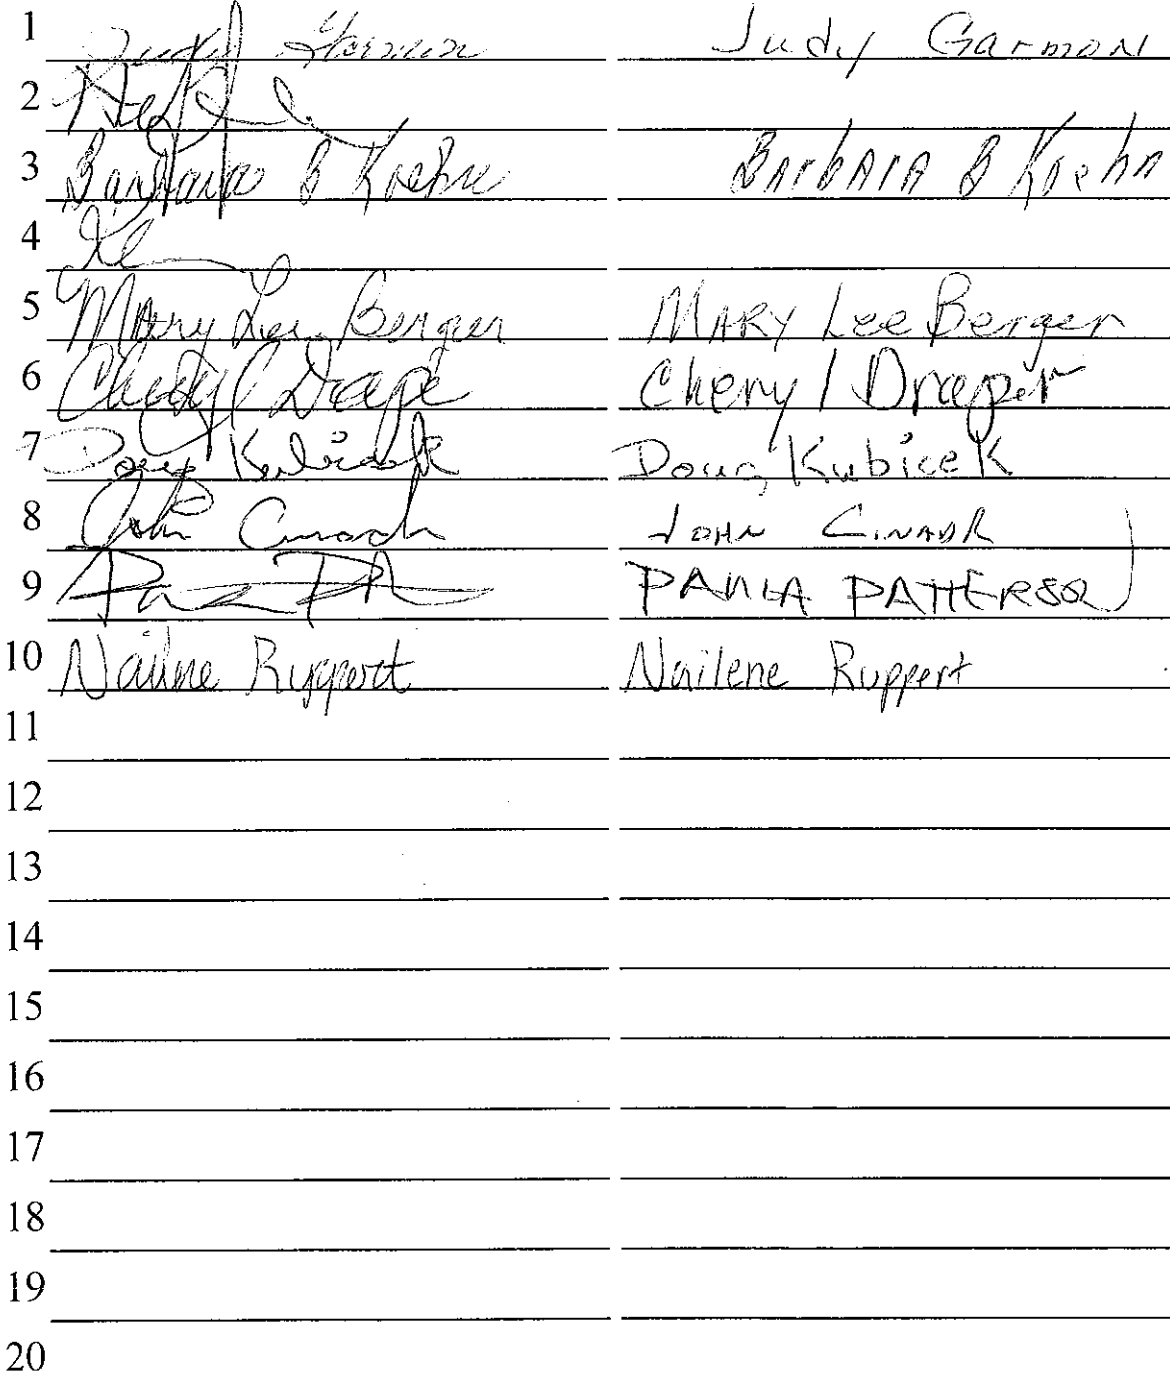 1 Judy Garmon Judy Garmon
2
3 Barbara B Koehn BArbArA B Koehn
4
5 Mary Lee Berger MARY Lee Berger
6 Cheryl Draper Cheryl Draper
7 Doug Kubicek Doug Kubicek
8 John JOHN
9 PATTERSON
10 Nailene Ruppert Nailene Ruppert
11
12
13
14
15
16
17
18
19
20